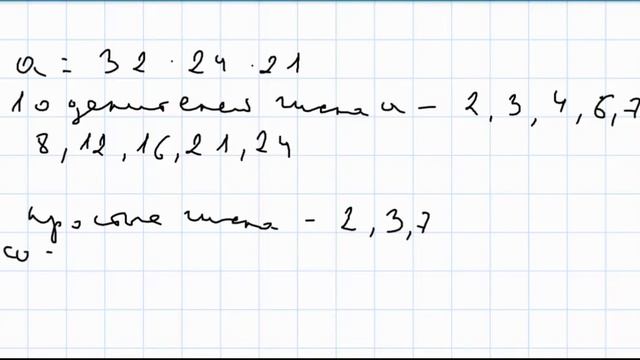 a = 32 · 24 · 21
10 делителей числа a – 2, 3, 4, 6, 7
8, 12, 16, 21, 24
простые числа – 2, 3, 7
со -